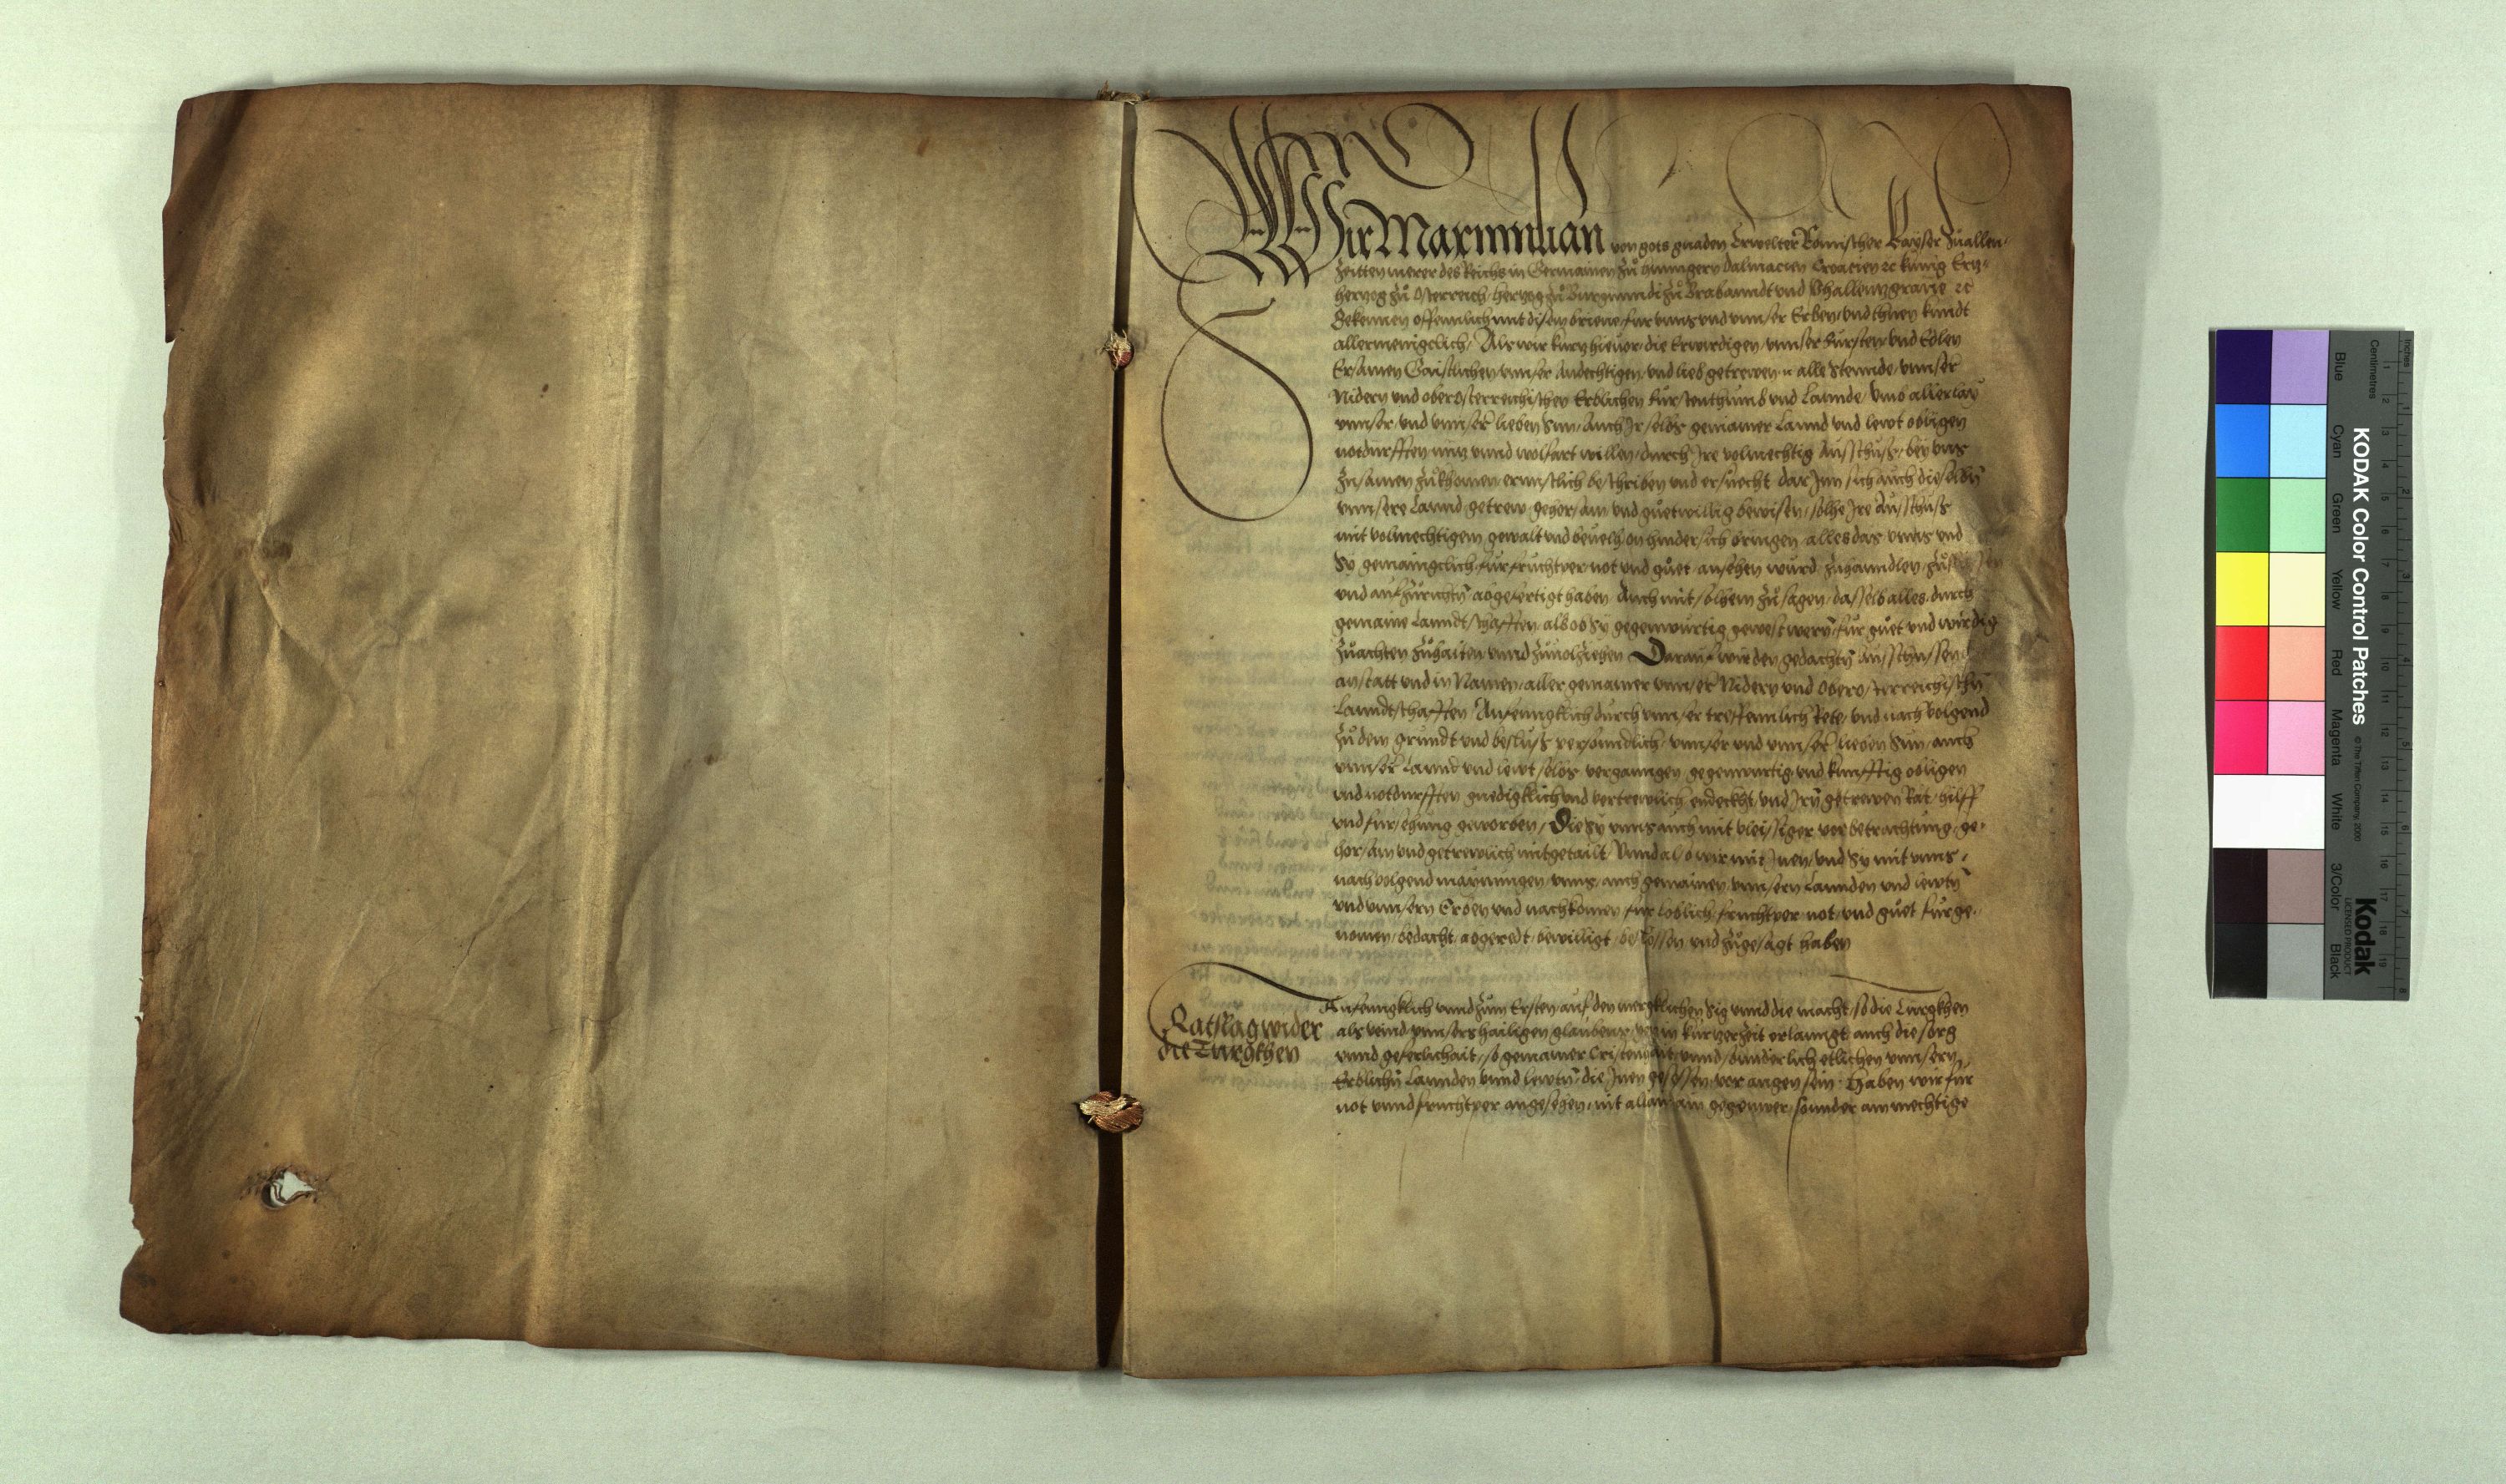 Wir Maximilian von gots gnaden Erwelter Römischer Kayser zuallen
zeitten merer des Reichs in Germanien zů Hunngern Dalmacien Croacien ꝛc kunig Ertz-
hertzog zů Osterreich, hertzog zů Burgunndi zů Brabanndt und Phallenntzgrave ꝛc
Bekennen offennlich mit disem brieve fur unns und unnser Erben, und thuen kundt
allermenigclich, Als wir kurtz hievor, die Erwirdigen, unnser Fürsten und Edlen
Ersamen Gaistlichen unnser Andechtigen, und lieb getrewen, N. alle Stennde, unnser
Nidern und oberOsterreichischen Erblichen Fürstenthumb und Lannde, Umb allerlay
unnser, und unnser lieben Sün, Auch Ir selbs gemainer Lannd und lewt obligen
notdurfften, nutz unnd wolfart willen, durch Ire volmechtig Ausschuss, bey uns
zusamen zůkhomen, ernnstlich beschriben und ersuecht, darInn sich auch dieselbn
unnsere Lannd getrew gehorsam und guetwillig bewisen, solhe Ire Ausschuss
mit volmechtigem gewalt und bevelh on hindersich bringen alles das unns und
Sy gemaingclich, fur fruchtper not und guet ansehen wurd, zuhanndlen,
und aufzurichtn abgefertigt haben, Auch mit solhem zůsagen, dasselb alles, durch
gemaine Lanndtschafften, als ob Sy gegenwurtig gewest wern, für guet und wirdig
zůachten zůhalten unnd zůvolziehen Darauf wir den gedachtn Ausschussen
anstatt und in Namen, aller gemainer unnser Nidern und Oberosterreichischn
Lanndtschafften Anfenngklich durch unnser treffennlich Rete, und nachvolgend
zů dem grundt und besluss personndlich, unnser und unnser lieben Sün, auch
unnser Lannd und lewt selbs vergangen gegenwurtig und kunfftig obligen
und notdurfften gnedigklich und vertrewlich endeckht, und Irn getrewen Rat, hilff
und fursehung geworben, Die Sy unns auch mit vleissiger vorbetrachtung, ge-
horsam und getrewlich mitgetailt, Unnd also wir mit Inen, und Sy mit unns,
nachvolgend maynungen, unns, auch gemainen unnsern Lannden und lewtn
und unnsern Erben und nachkomen für loblich fruchtper not, und guet fürge-
nomen, bedacht, abgeredt, bewilligt, beslossen und zůgesagt haben
Ratslag wider
die Turgkhen
Anfenngklich unnd zum Ersten auf den mergklichen Sig unnd die macht, so die Turgkhen
als veind unnsers hailigen glaubens, in kurtzer zeit erlanngt, auch die sorg
unnd geferlichait, so gemainer Cristenhait, unnd sunderlich etlichen unnsern
Erblichn Lannden unnd lewtn, die Inen gesessen, vor augen sein. Haben wir für
not unnd fruchtper angesehen, nit allain am gegenwer, sonnder am mechtige